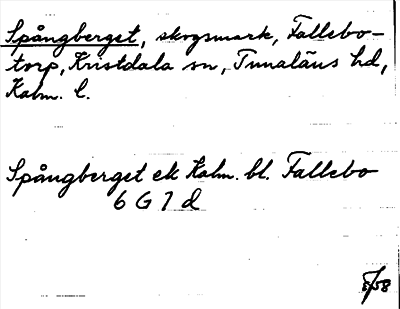 Spångberget, skogsmark, Fallebo-
torp, Kristdala sn, Tunaläns hd,
Kalm. l.
Spångberget ek Kalm. bl. Fallebo
6 G 7 d